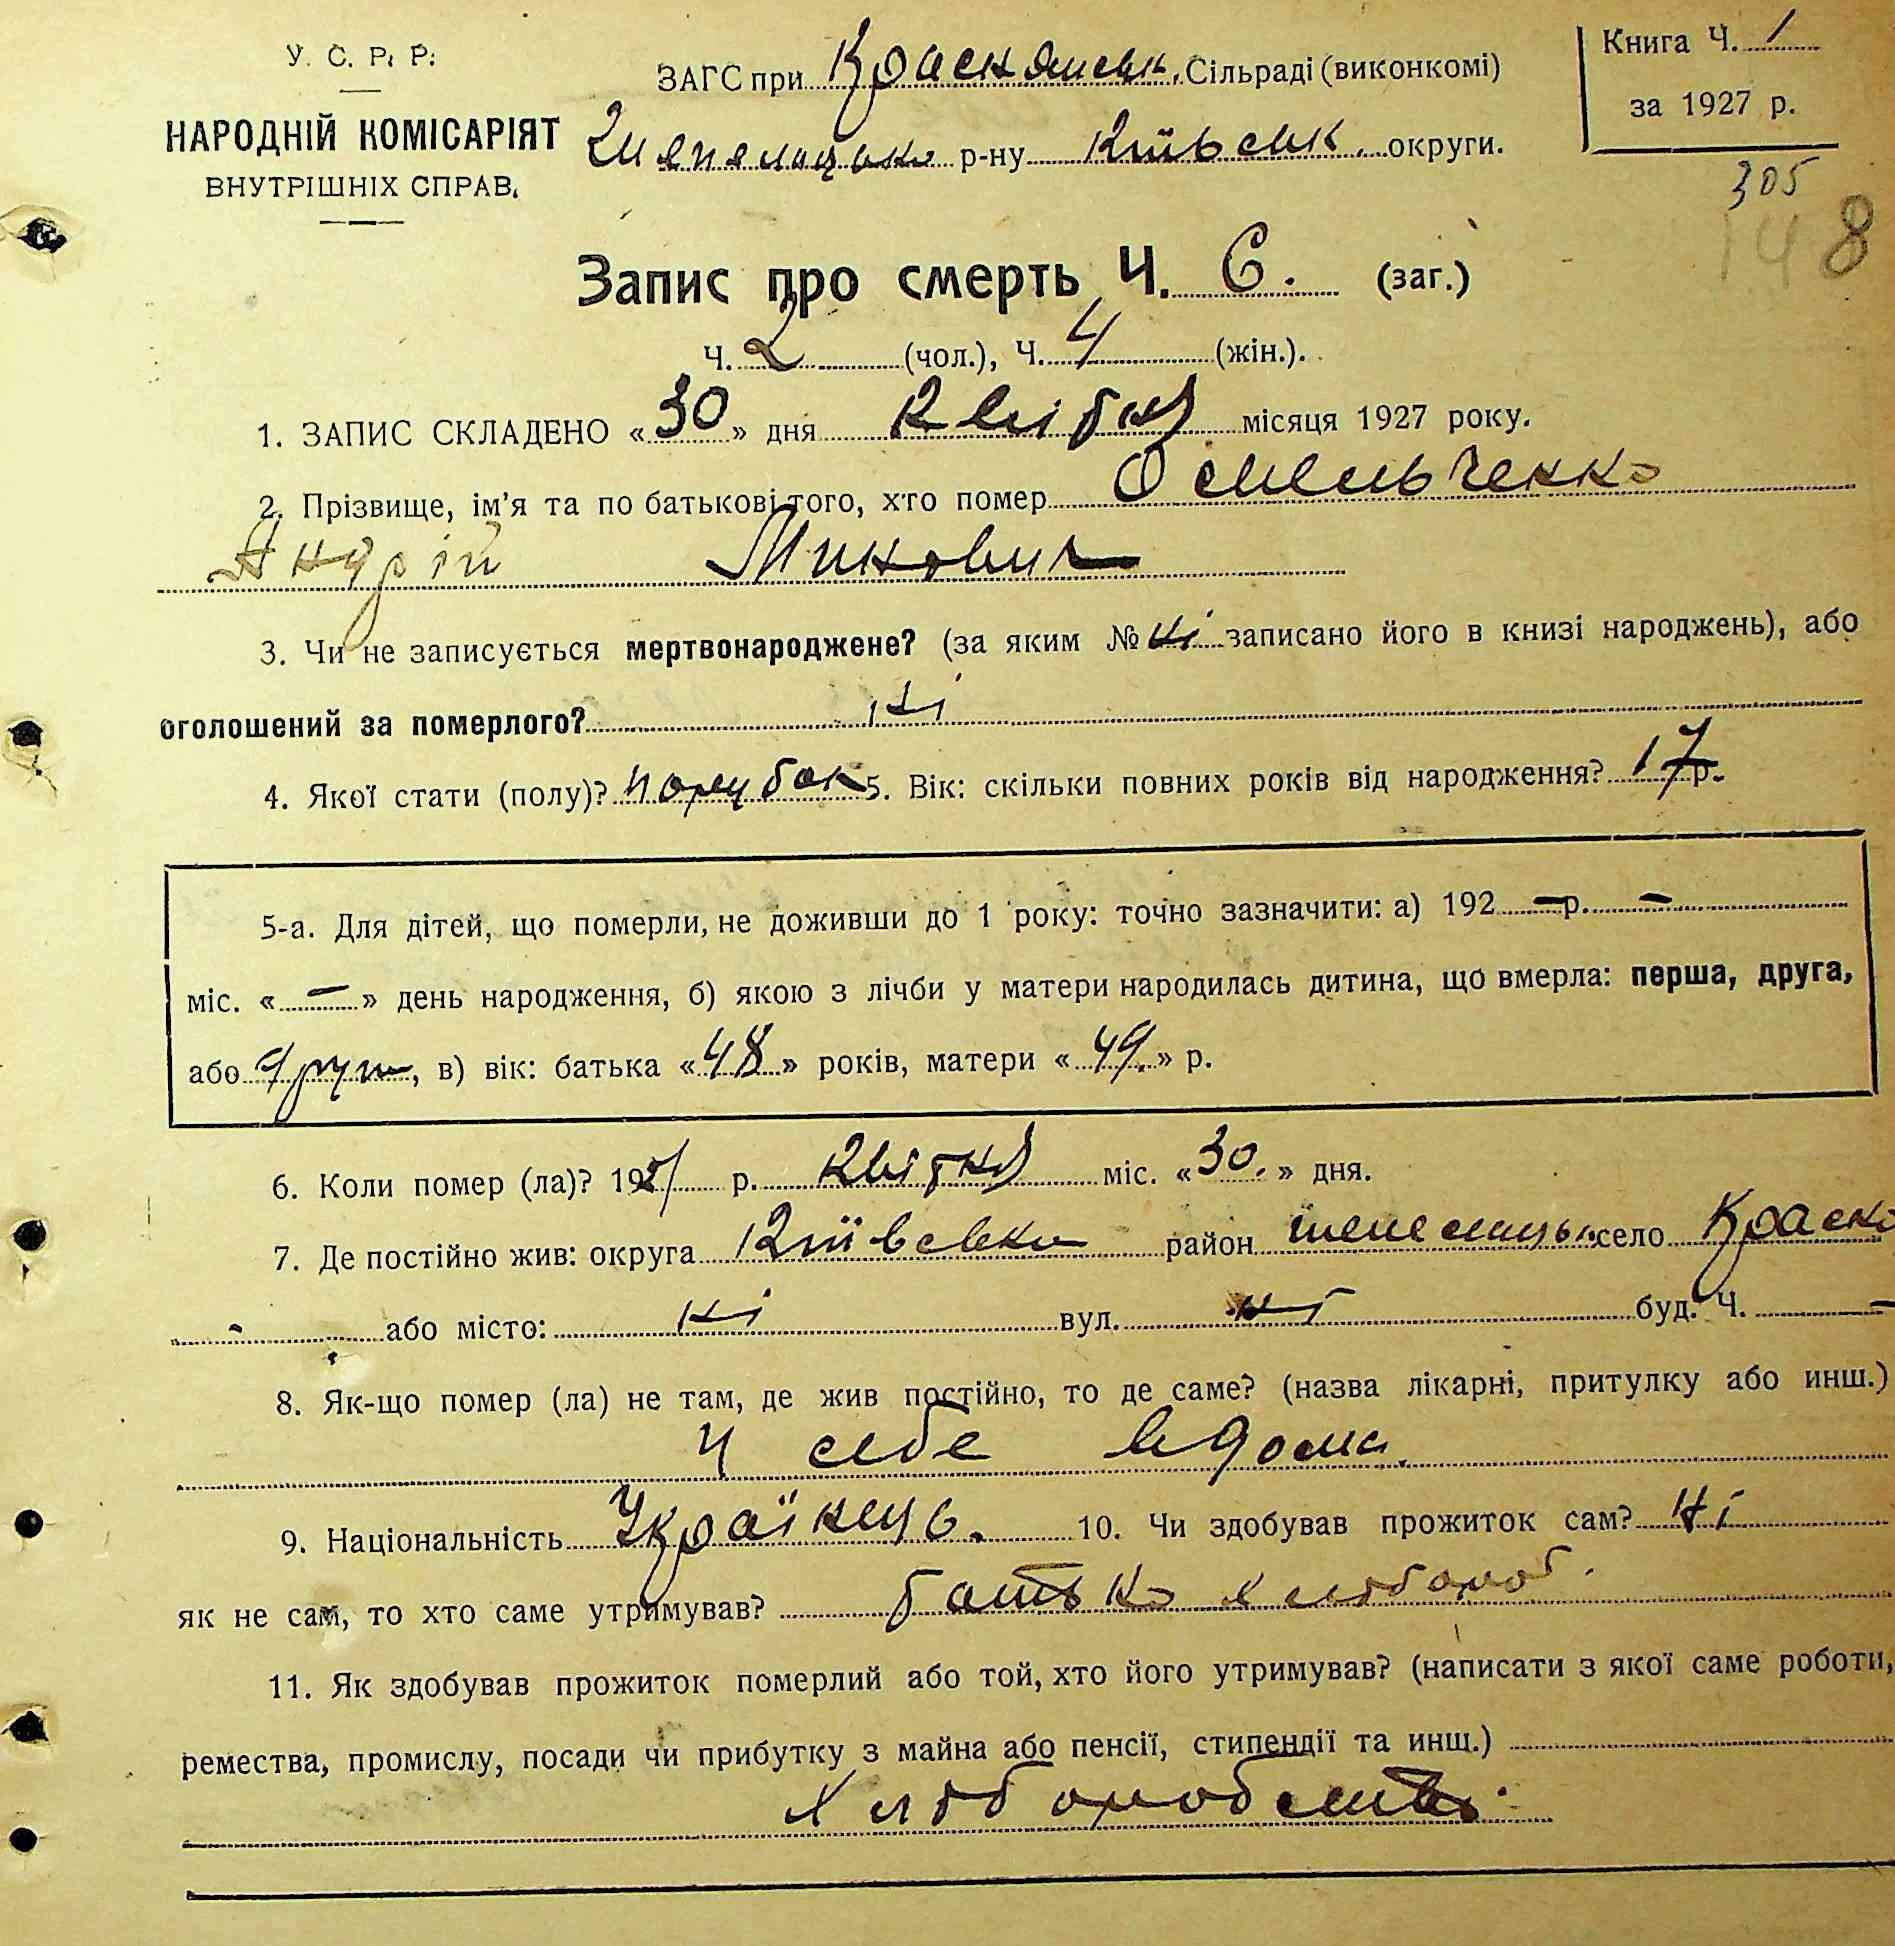 У. С. Р. Р.
НАРОДНІЙ КОМІСАРІЯТ
ВНУТРІШНІХ СПРАВ.
ЗАГС при Краснянськ. Сільраді (виконкомі)
р-ну Київськ. округи.
Книга Ч. 1
за 1927 р.
305
148
Запис про смерть Ч. 6. (заг.)
Ч. 2 (чол.), Ч. 4 (жін.).
1. ЗАПИС СКЛАДЕНО «30» дня Квітня місяця 1927 року.
2. Прізвище, ім'я та по батькові того, хто помер Омельченко
Андрій Минович
3. Чи не записується мертвонароджене? (за яким № ні записано його в книзі народжень), або
оголошений за померлого? ні
4. Якої стати (полу)? парубок 5. Вік: скільки повних років від народження? 17 р.
5-а. Для дітей, що померли, не доживши до 1 року: точно зазначити: а) 192 — р. —
міс. «—» день народження, б) якою з лічби у матери народилась дитина, що вмерла: перша, друга,
або друга, в) вік: батька «48» років, матери «49.» р.
6. Коли помер (ла)? 1927 р. Квітня міс. «30.» дня.
7. Де постійно жив: округа Київська район село Красно
- або місто: ні вул. ні буд. Ч. —
8. Як-що помер (ла) не там, де жив постійно, то де саме? (назва лікарні, притулку або инш.)
У себе вдома.
9. Національність Українець. 10. Чи здобував прожиток сам? Ні
як не сам, то хто саме утримував? батько хлібороб.
11. Як здобував прожиток померлий або той, хто його утримував? (написати з якої саме роботи,
ремества, промислу, посади чи прибутку з майна або пенсії, стипендії та инш.)